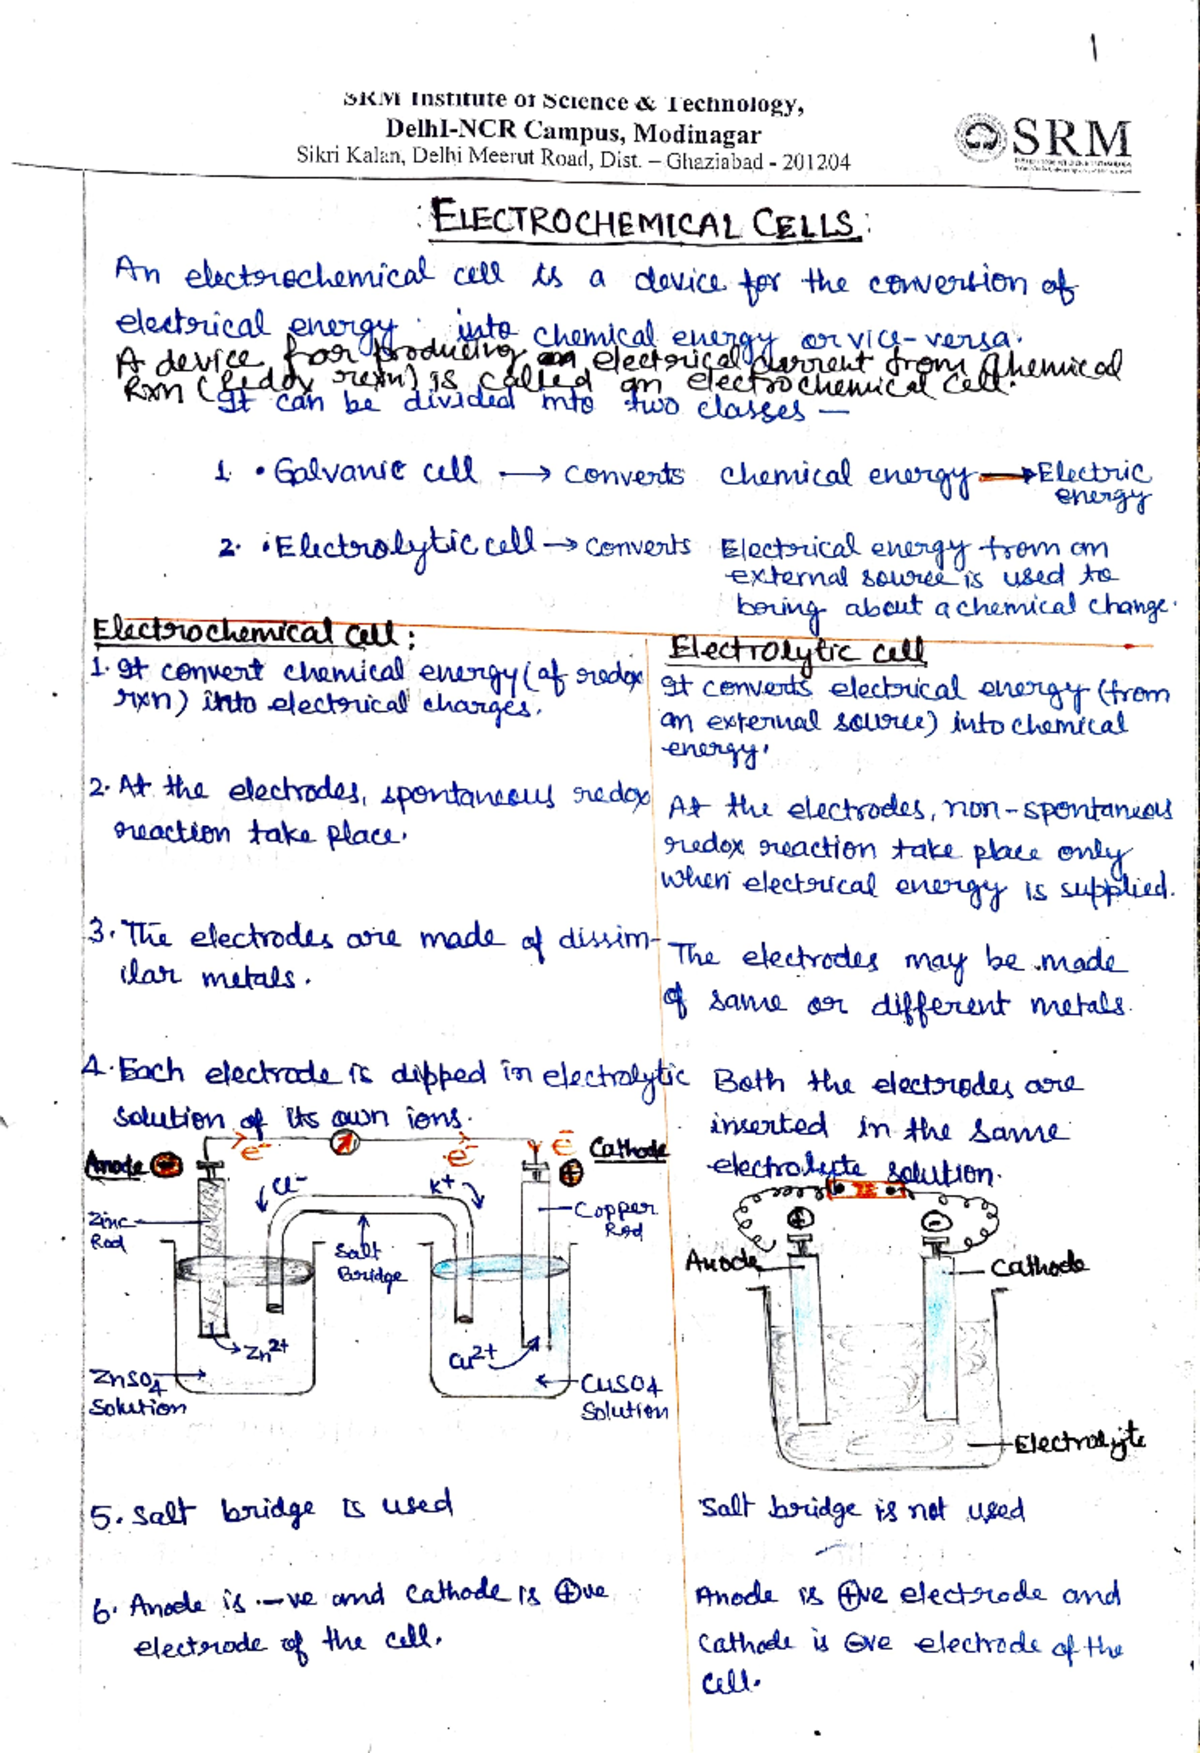 1
SRM Institute of Science & Technology,
DelhI-NCR Campus, Modinagar
Sikri Kalan, Delhi Meerut Road, Dist. – Ghaziabad - 201204
SRM
: ELECTROCHEMICAL CELLS :
An electrochemical cell is a device for the conversion of
electrical energy into chemical energy or vice-versa.
A device for producing an electrical current from chemical
Rxn (Redox rexn) is called an electrochemical cell.
It can be divided into two classes —
1. • Galvanic cell → converts chemical energy → Electric
energy
2. • Electrolytic cell → converts Electrical energy from an
external source is used to
bring about a chemical change.
Electrochemical cell :
1. It convert chemical energy (of redox
rxn) into electrical charges.
2. At the electrodes, spontaneous redox
reaction take place.
3. The electrodes are made of dissim-
ilar metals.
4. Each electrode is dipped in electrolytic
solution of its own ions.
e- e- e-
Anode - Cathode +
Cl- K+
Zinc
Rod
Salt
Bridge
Copper
Rod
Zn2+
Cu2+
ZnSO4
Solution
CuSO4
Solution
5. Salt bridge is used
6. Anode is -ve and cathode is +ve
electrode of the cell.
Electrolytic cell
It converts electrical energy (from
an external source) into chemical
energy.
At the electrodes, non-spontaneous
redox reaction take place only
when electrical energy is supplied.
The electrodes may be made
of same or different metals.
Both the electrodes are
inserted in the same
electrolyte solution.
+ -
Anode
Cathode
Electrolyte
Salt bridge is not used
Anode is +ve electrode and
Cathode is -ve electrode of the
cell.